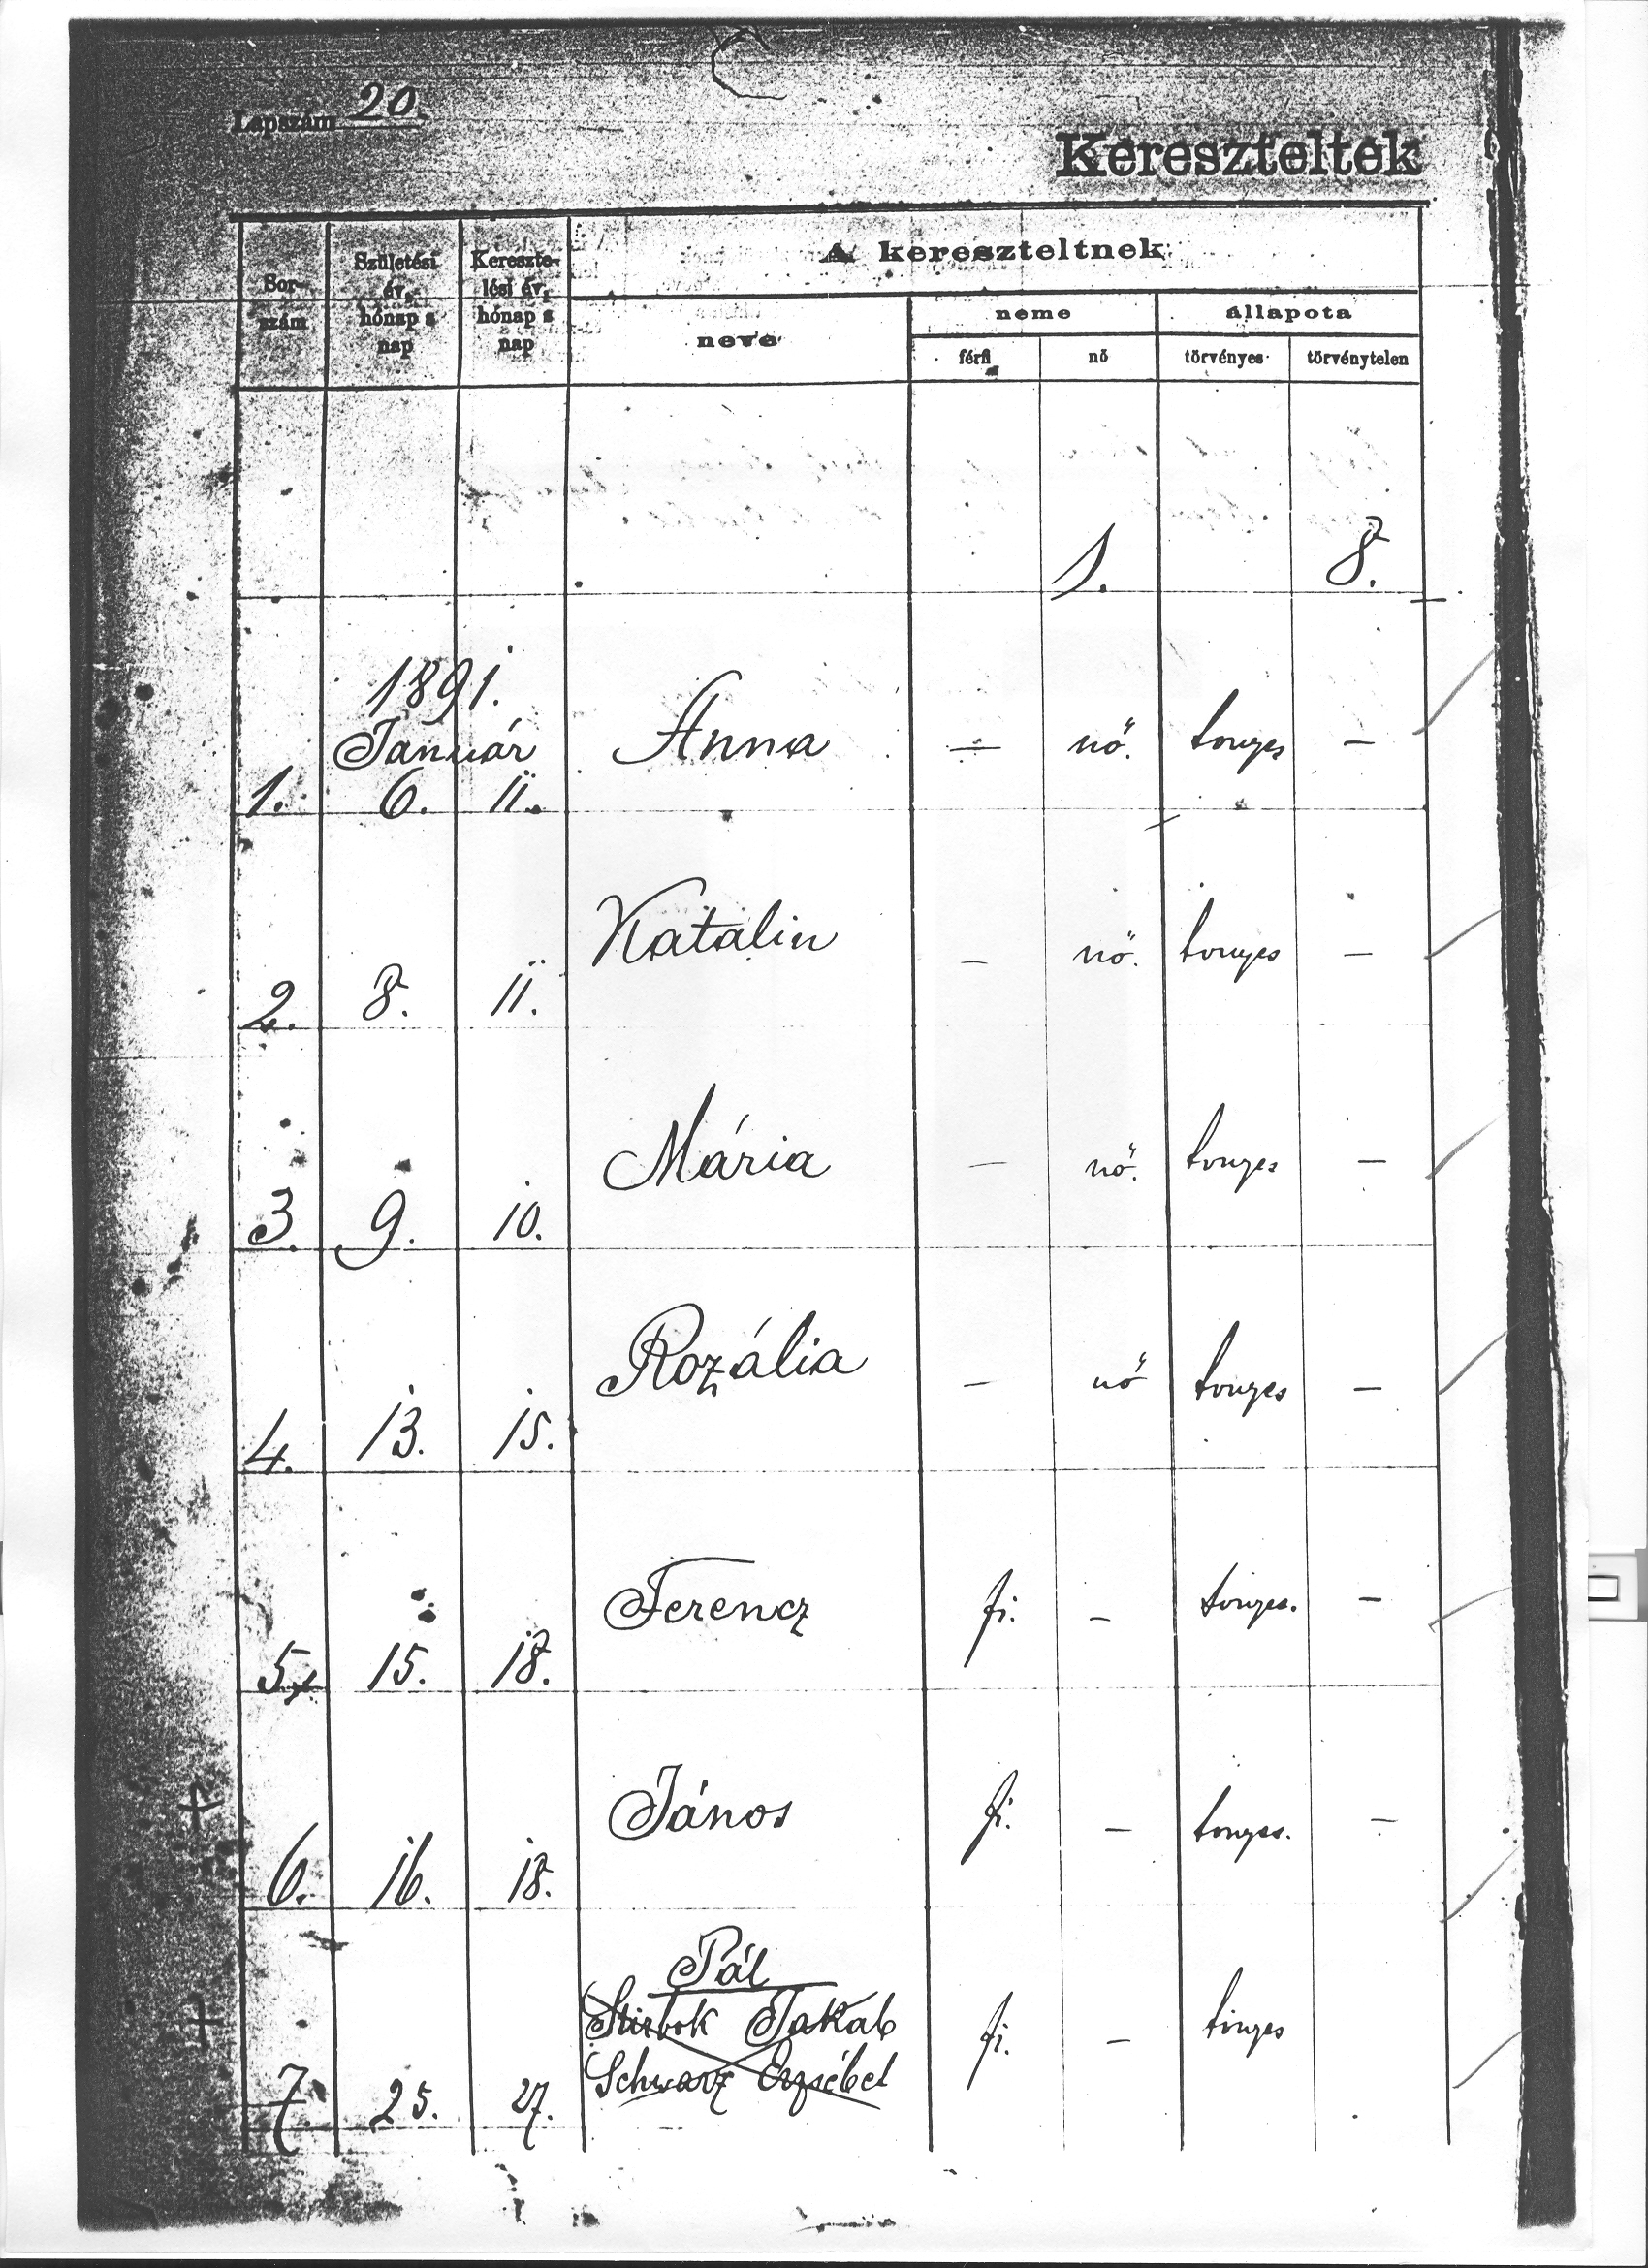 Lapszám 20.
Kereszteltek
Sor-
szám
Születési
év,
hónap s
nap
Kereszte-
lési év,
hónap s
nap
A kereszteltnek
neve
neme
állapota
férfi
nő
törvényes
törvénytelen
1. 8.
1891.
Január
1. 6. 11. Anna — nő. tvnyes —
2. 8. 11. Katalin — nő. tvnyes —
3. 9. 10. Mária — nő. tvnyes —
4. 13. 15. Rozália — nő tvnyes —
5. 15. 18. Ferencz fi. — tvnyes. —
6. 16. 18. János fi. — tvnyes. —
7. 25. 27. Pál fi. — tvnyes
Jakab
Schwarz Erzsébet